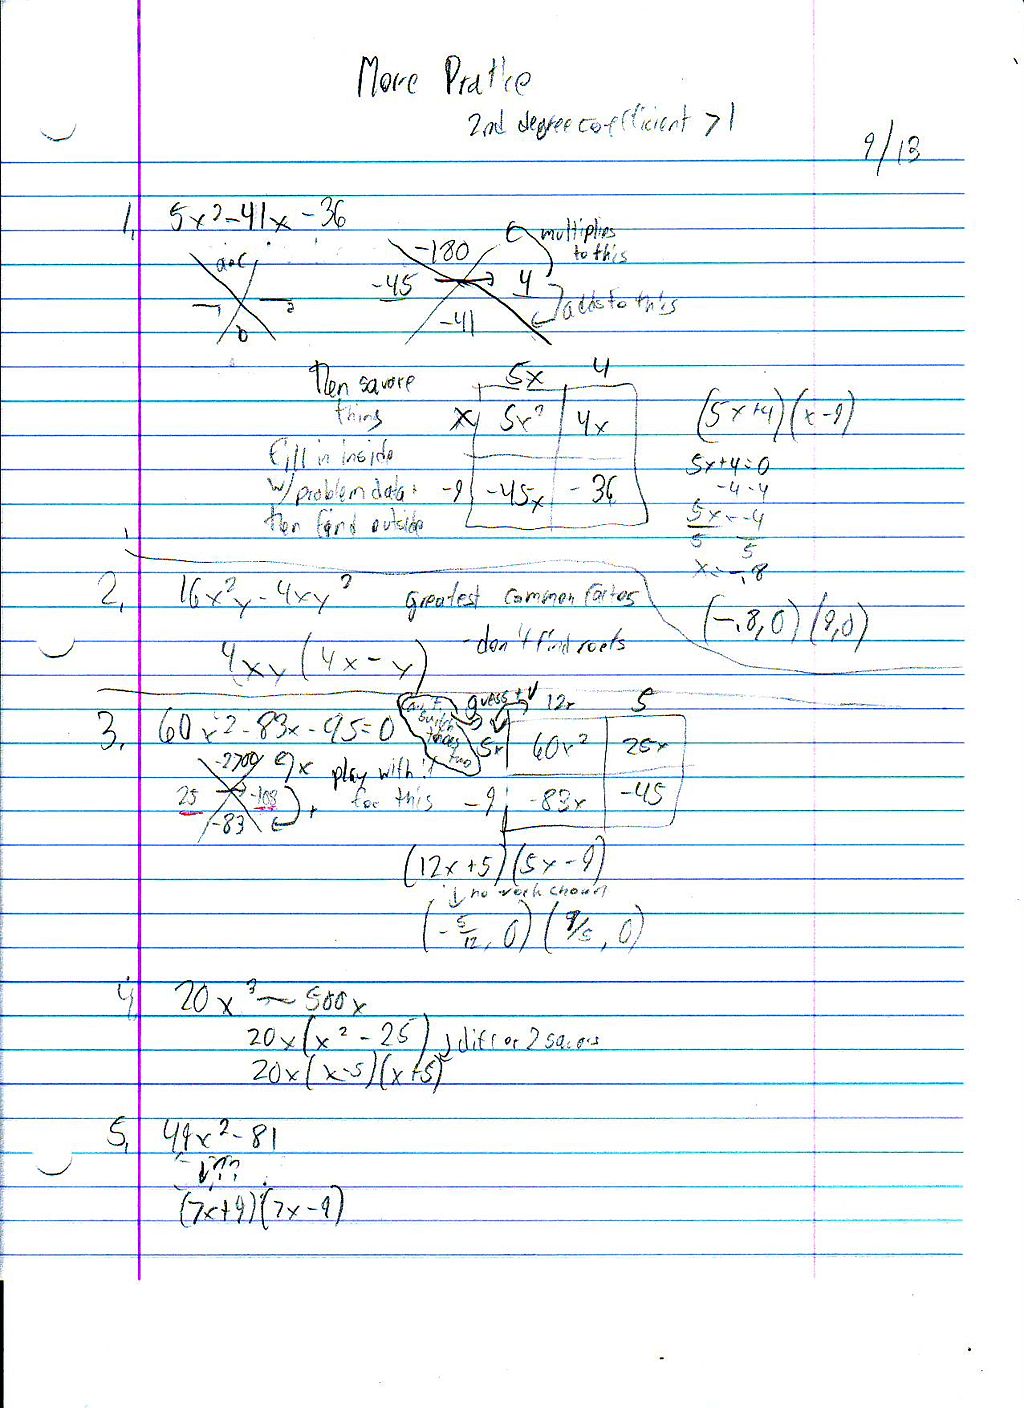 More Pratice
2nd degree coefficient > 1
9/13
1. 5x² - 41x - 36
a•c
b
-180
-45 4
-41
multiplies
to this
adds to this
then square
thing
fill in inside
w/ problem data.
then find outside
5x 4
x 5x² 4x
-9 -45x -36
(5x+4)(x-9)
5x+4=0
-4 -4
5x = -4
5 5
x = -.8
(-.8,0) (9,0)
2. 16x²y - 4xy² greatest common factor
4xy(4x-y) - don't find roots
3. 60x² - 83x - 45 = 0
-2700
25 -108
-83
play with it
for this
guess + √
12x 5
5x 60x² 25x
-9 -83x -45
(12x+5)(5x-9)
↓ no work shown
(-5/12, 0) (9/5, 0)
4. 20x³ - 500x
20x(x² - 25) diff of 2 squares
20x(x-5)(x+5)
5. 49x² - 81
↓??
(7x+9)(7x-9)